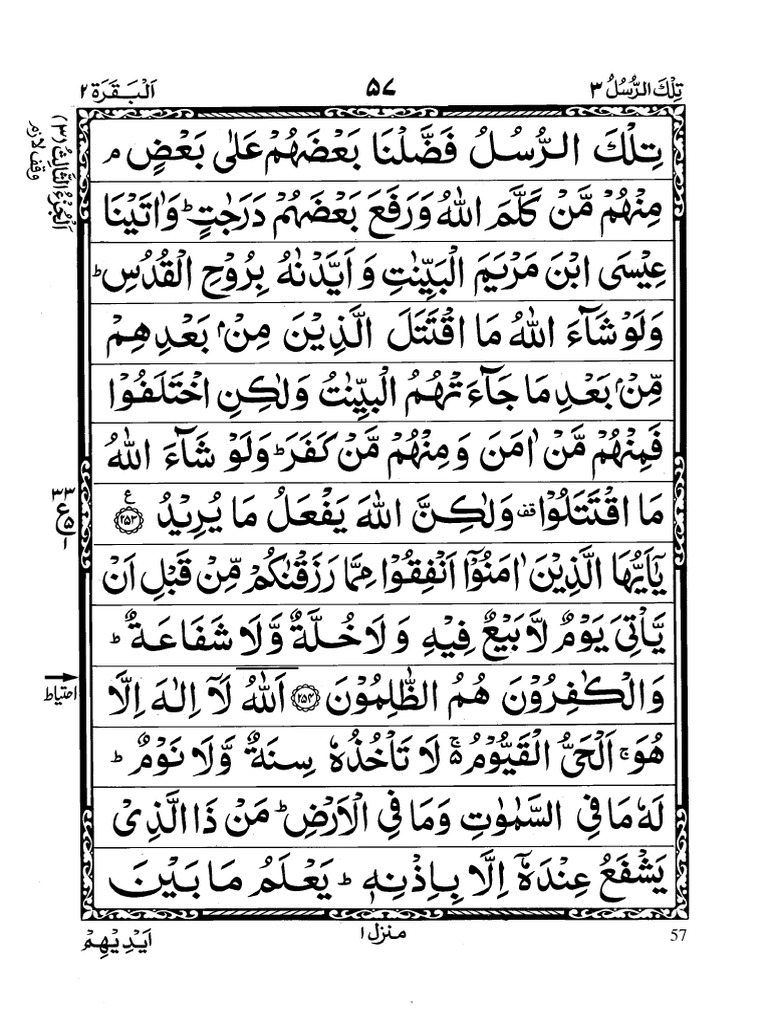 تِلْكَ الرُّسُلُ ٣
٥٧
اَلْبَقَرَة ٢
اَلْجُزْءُ الثَّالِثُ (٣)
وقف لازم
تِلْكَ الرُّسُلُ فَضَّلْنَا بَعْضَهُمْ عَلٰى بَعْضٍ ۘ
مِنْهُمْ مَّنْ كَلَّمَ اللّٰهُ وَرَفَعَ بَعْضَهُمْ دَرَجٰتٍ ؕ وَاٰتَيْنَا
عِيْسَى ابْنَ مَرْيَمَ الْبَيِّنٰتِ وَاَيَّدْنٰهُ بِرُوْحِ الْقُدُسِ ؕ
وَلَوْ شَآءَ اللّٰهُ مَا اقْتَتَلَ الَّذِيْنَ مِنْۢ بَعْدِهِمْ
مِّنْۢ بَعْدِ مَا جَآءَتْهُمُ الْبَيِّنٰتُ وَلٰكِنِ اخْتَلَفُوْا
فَمِنْهُمْ مَّنْ اٰمَنَ وَمِنْهُمْ مَّنْ كَفَرَ ؕ وَلَوْ شَآءَ اللّٰهُ
مَا اقْتَتَلُوْا ۟ وَلٰكِنَّ اللّٰهَ يَفْعَلُ مَا يُرِيْدُ ﴿۲۵۳﴾ ع
٣٣
ع
٥
١
يٰۤاَيُّهَا الَّذِيْنَ اٰمَنُوْۤا اَنْفِقُوْا مِمَّا رَزَقْنٰكُمْ مِّنْ قَبْلِ اَنْ
يَّاْتِيَ يَوْمٌ لَّا بَيْعٌ فِيْهِ وَلَا خُلَّةٌ وَّلَا شَفَاعَةٌ ؕ
وَالْكٰفِرُوْنَ هُمُ الظّٰلِمُوْنَ ﴿۲۵۴﴾ اَللّٰهُ لَاۤ اِلٰهَ اِلَّا
احتیاط
هُوَ ۚ اَلْحَيُّ الْقَيُّوْمُ ۬ۚ لَا تَاْخُذُهٗ سِنَةٌ وَّلَا نَوْمٌ ؕ
لَهٗ مَا فِي السَّمٰوٰتِ وَمَا فِي الْاَرْضِ ؕ مَنْ ذَا الَّذِيْ
يَشْفَعُ عِنْدَهٗۤ اِلَّا بِاِذْنِهٖ ؕ يَعْلَمُ مَا بَيْنَ
57
منزل ١
اَيْدِيْهِمْ